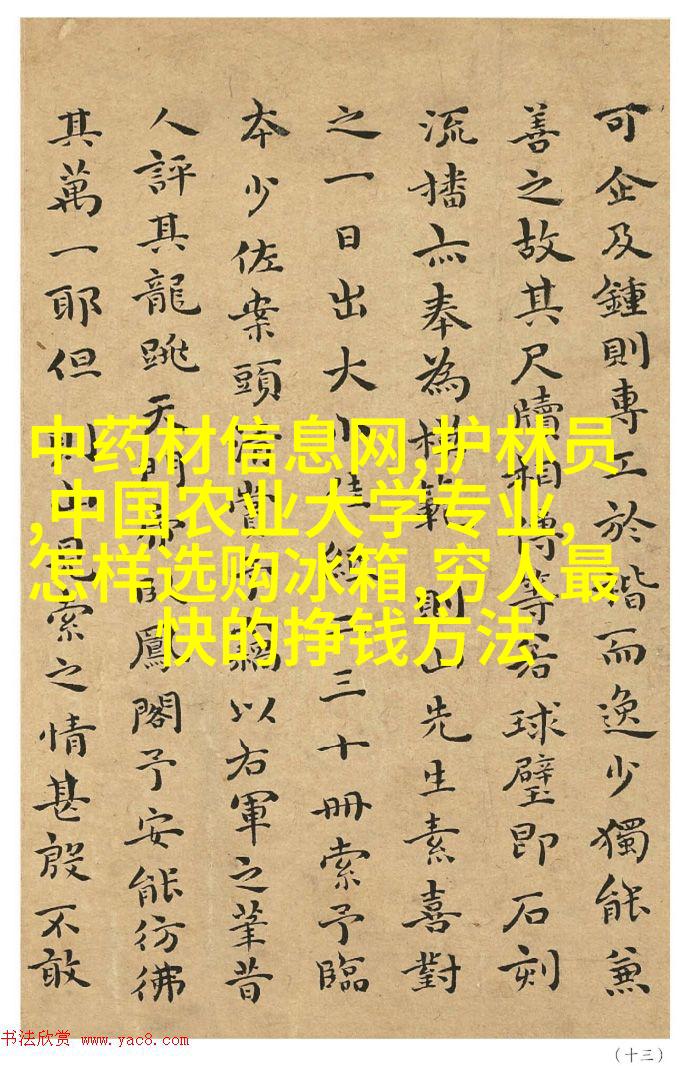 可企及鍾則專工於楷而逸少獨能兼
善之故其尺牘相傳等若球璧即石刻
流播亦奉為模範則山先生素喜對
之一日出大小佳紙二三十冊索予臨
本少佐案頭清賞以右軍之筆昔
人評其龍跳天門虎臥鳳閣予安能彷彿
其萬一耶但則山見索之情甚殷不敢
中药材信息网,护林员
,中国农业大学专业,
怎样选购冰箱,穷人最
快的挣钱方法
书法欣赏 www.yac8.com
（十三）